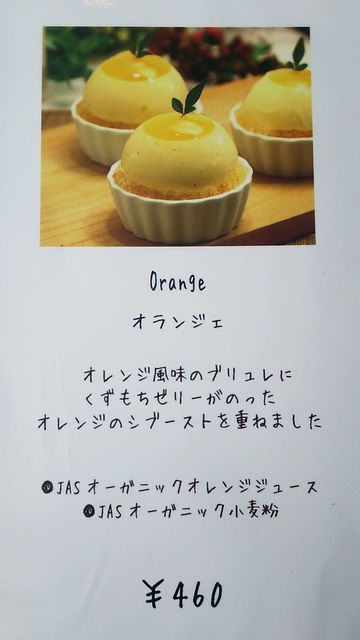 Orange
オランジェ
オレンジ風味のブリュレに
くずもちゼリーがのった
オレンジのシブーストを重ねました
●JASオーガニックオレンジジュース
●JASオーガニック小麦粉
¥460